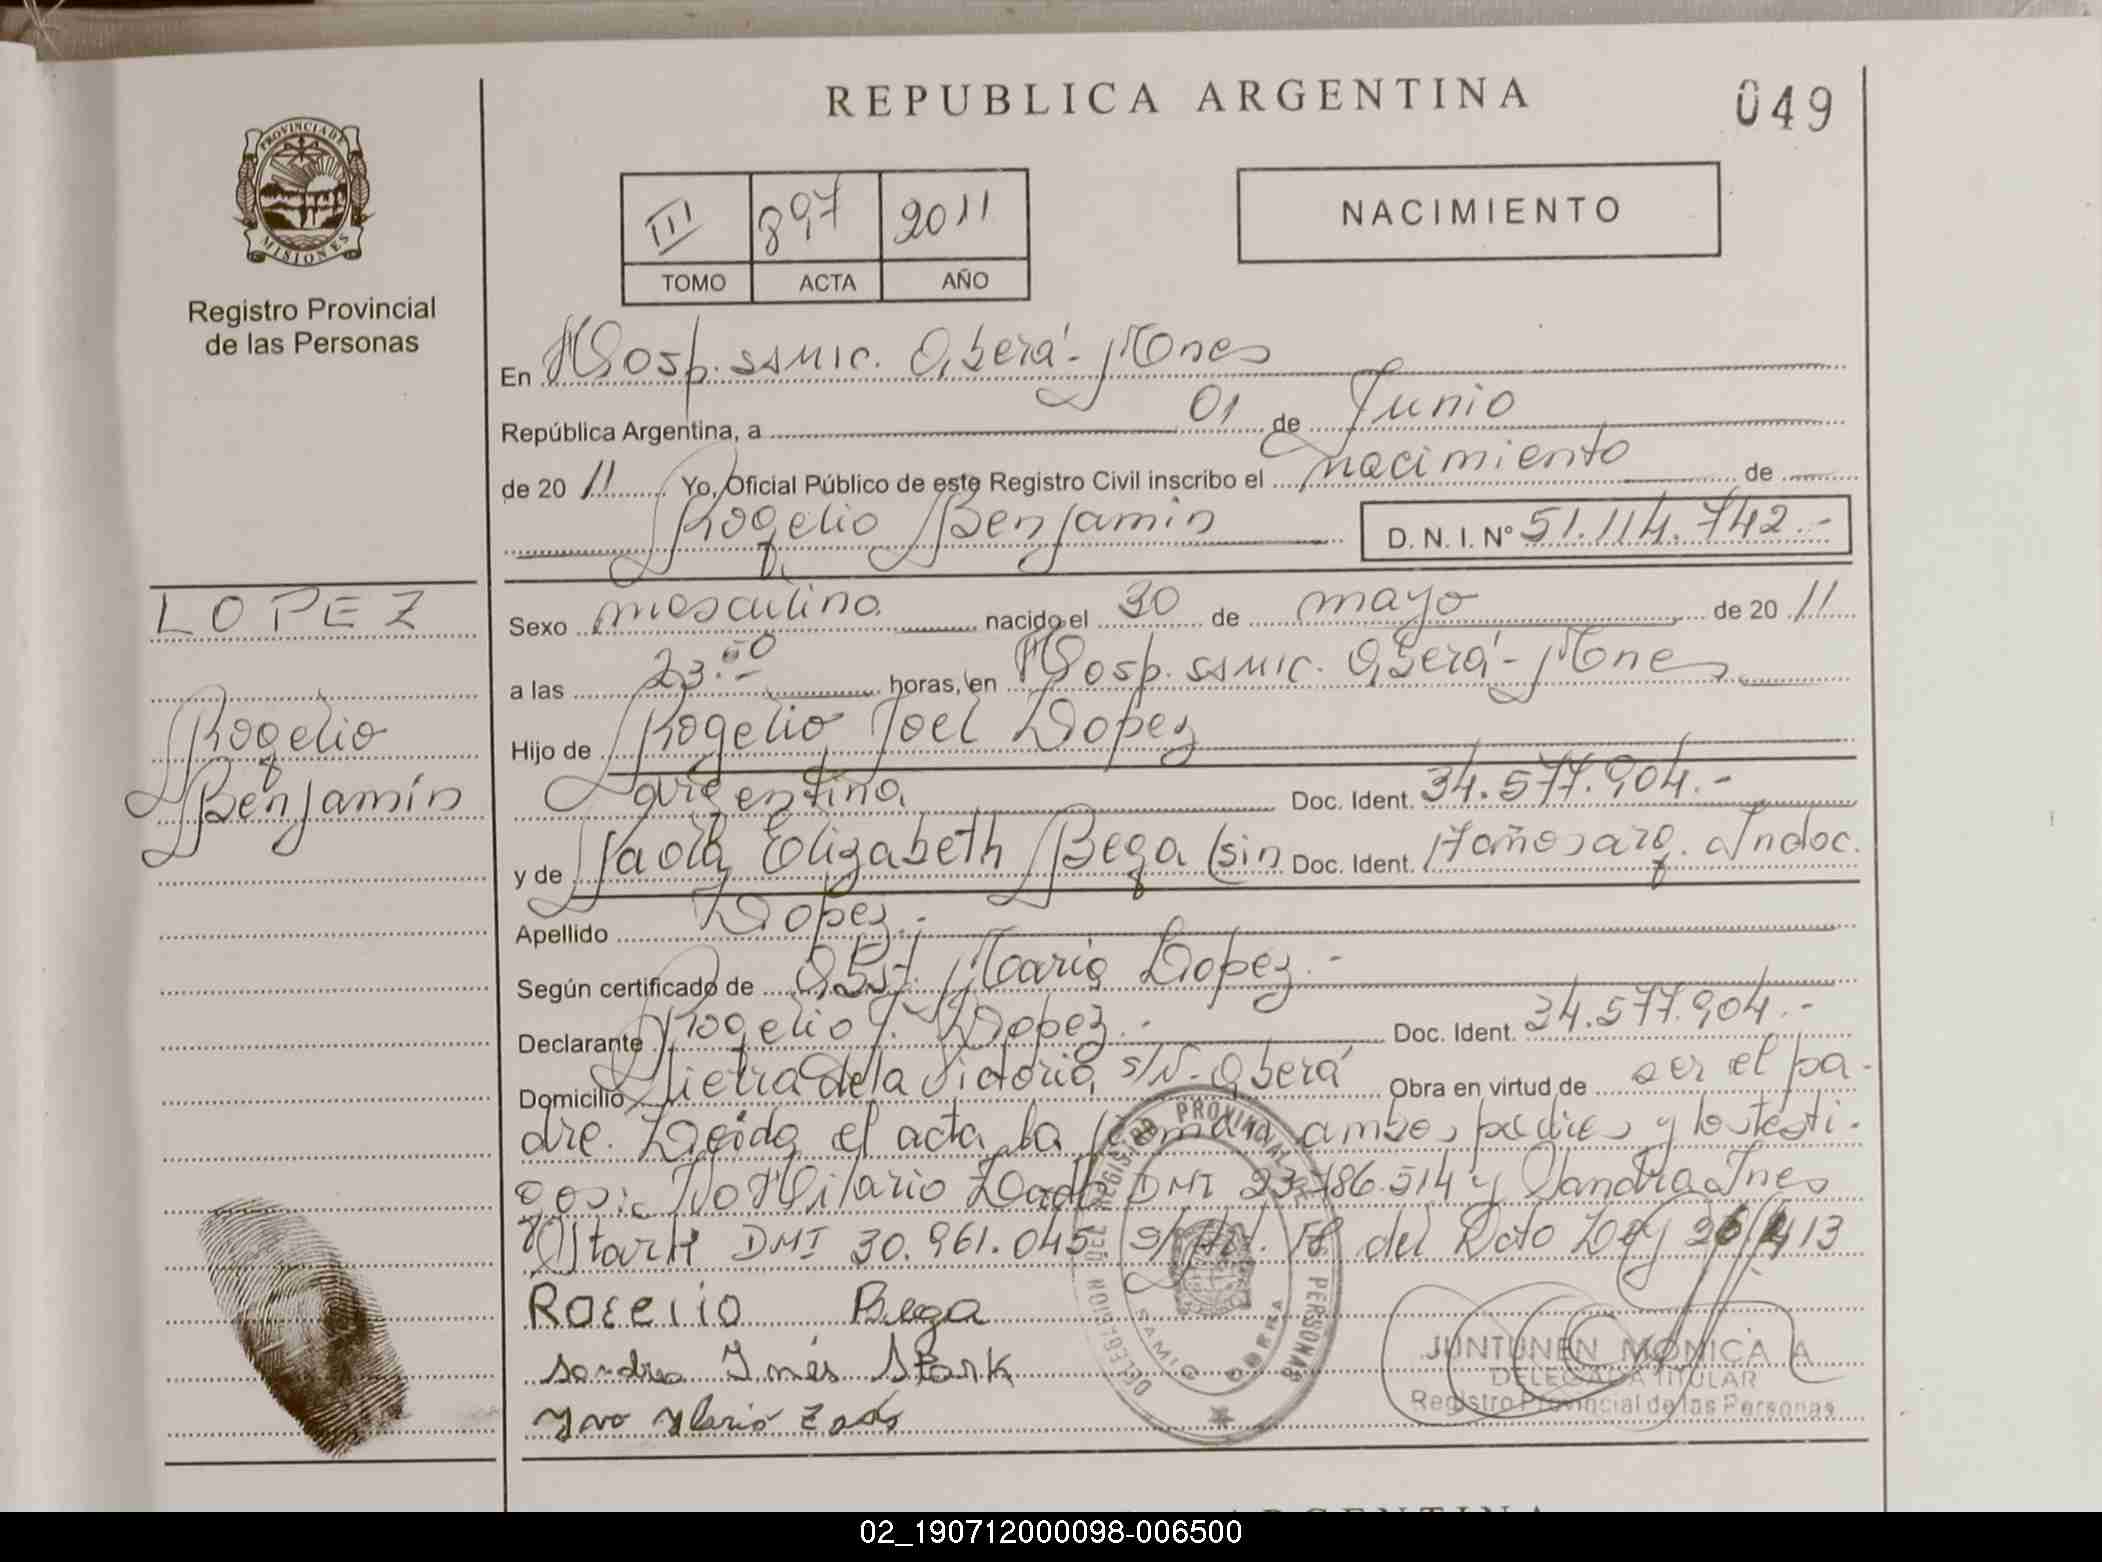 REPUBLICA ARGENTINA
049
PROVINCIA DE
MISIONES
Registro Provincial
de las Personas
III 897 2011
TOMO ACTA AÑO
NACIMIENTO
En Hosp. SAMIC. Oberá - Mnes
República Argentina, a 01 de Junio
de 20 11 Yo, Oficial Público de este Registro Civil inscribo el nacimiento de
Rogelio Benjamín D. N. I. Nº 51.114.742.-
LOPEZ
Rogelio
Benjamín
Sexo masculino nacido el 30 de mayo de 20 11
a las 23.50 horas, en Hosp. SAMIC. Oberá - Mnes
Hijo de Rogelio Joel Lopez
argentina Doc. Ident. 34.577.904.-
y de Paola Elizabeth Bega (sin Doc. Ident. 17 años arg. Indoc.
Apellido Lopez.-
Según certificado de Obst. Maria Lopez.-
Declarante Rogelio J. Lopez.- Doc. Ident. 34.577.904.-
Domicilio de la Victoria s/N - Oberá Obra en virtud de ser el pa-
dre. Leida el acta la firman ambos padres y los testi-
gos: Ivo Hilario DMI 23.786.514 y Sandra Ines
Stark DMI 30.961.045 s/Art. 18 del Dcto Ley 26413
Rogelio Bega
Sandra Inés Stark
Ivo Ilario
REGISTRO PROVINCIAL DE LAS PERSONAS
DELEGACION DEL
SAMIC OBERA
JUNTUNEN MONICA A
DELEGADA TITULAR
Registro Provincial de las Personas
ARGENTINA
02_190712000098-006500